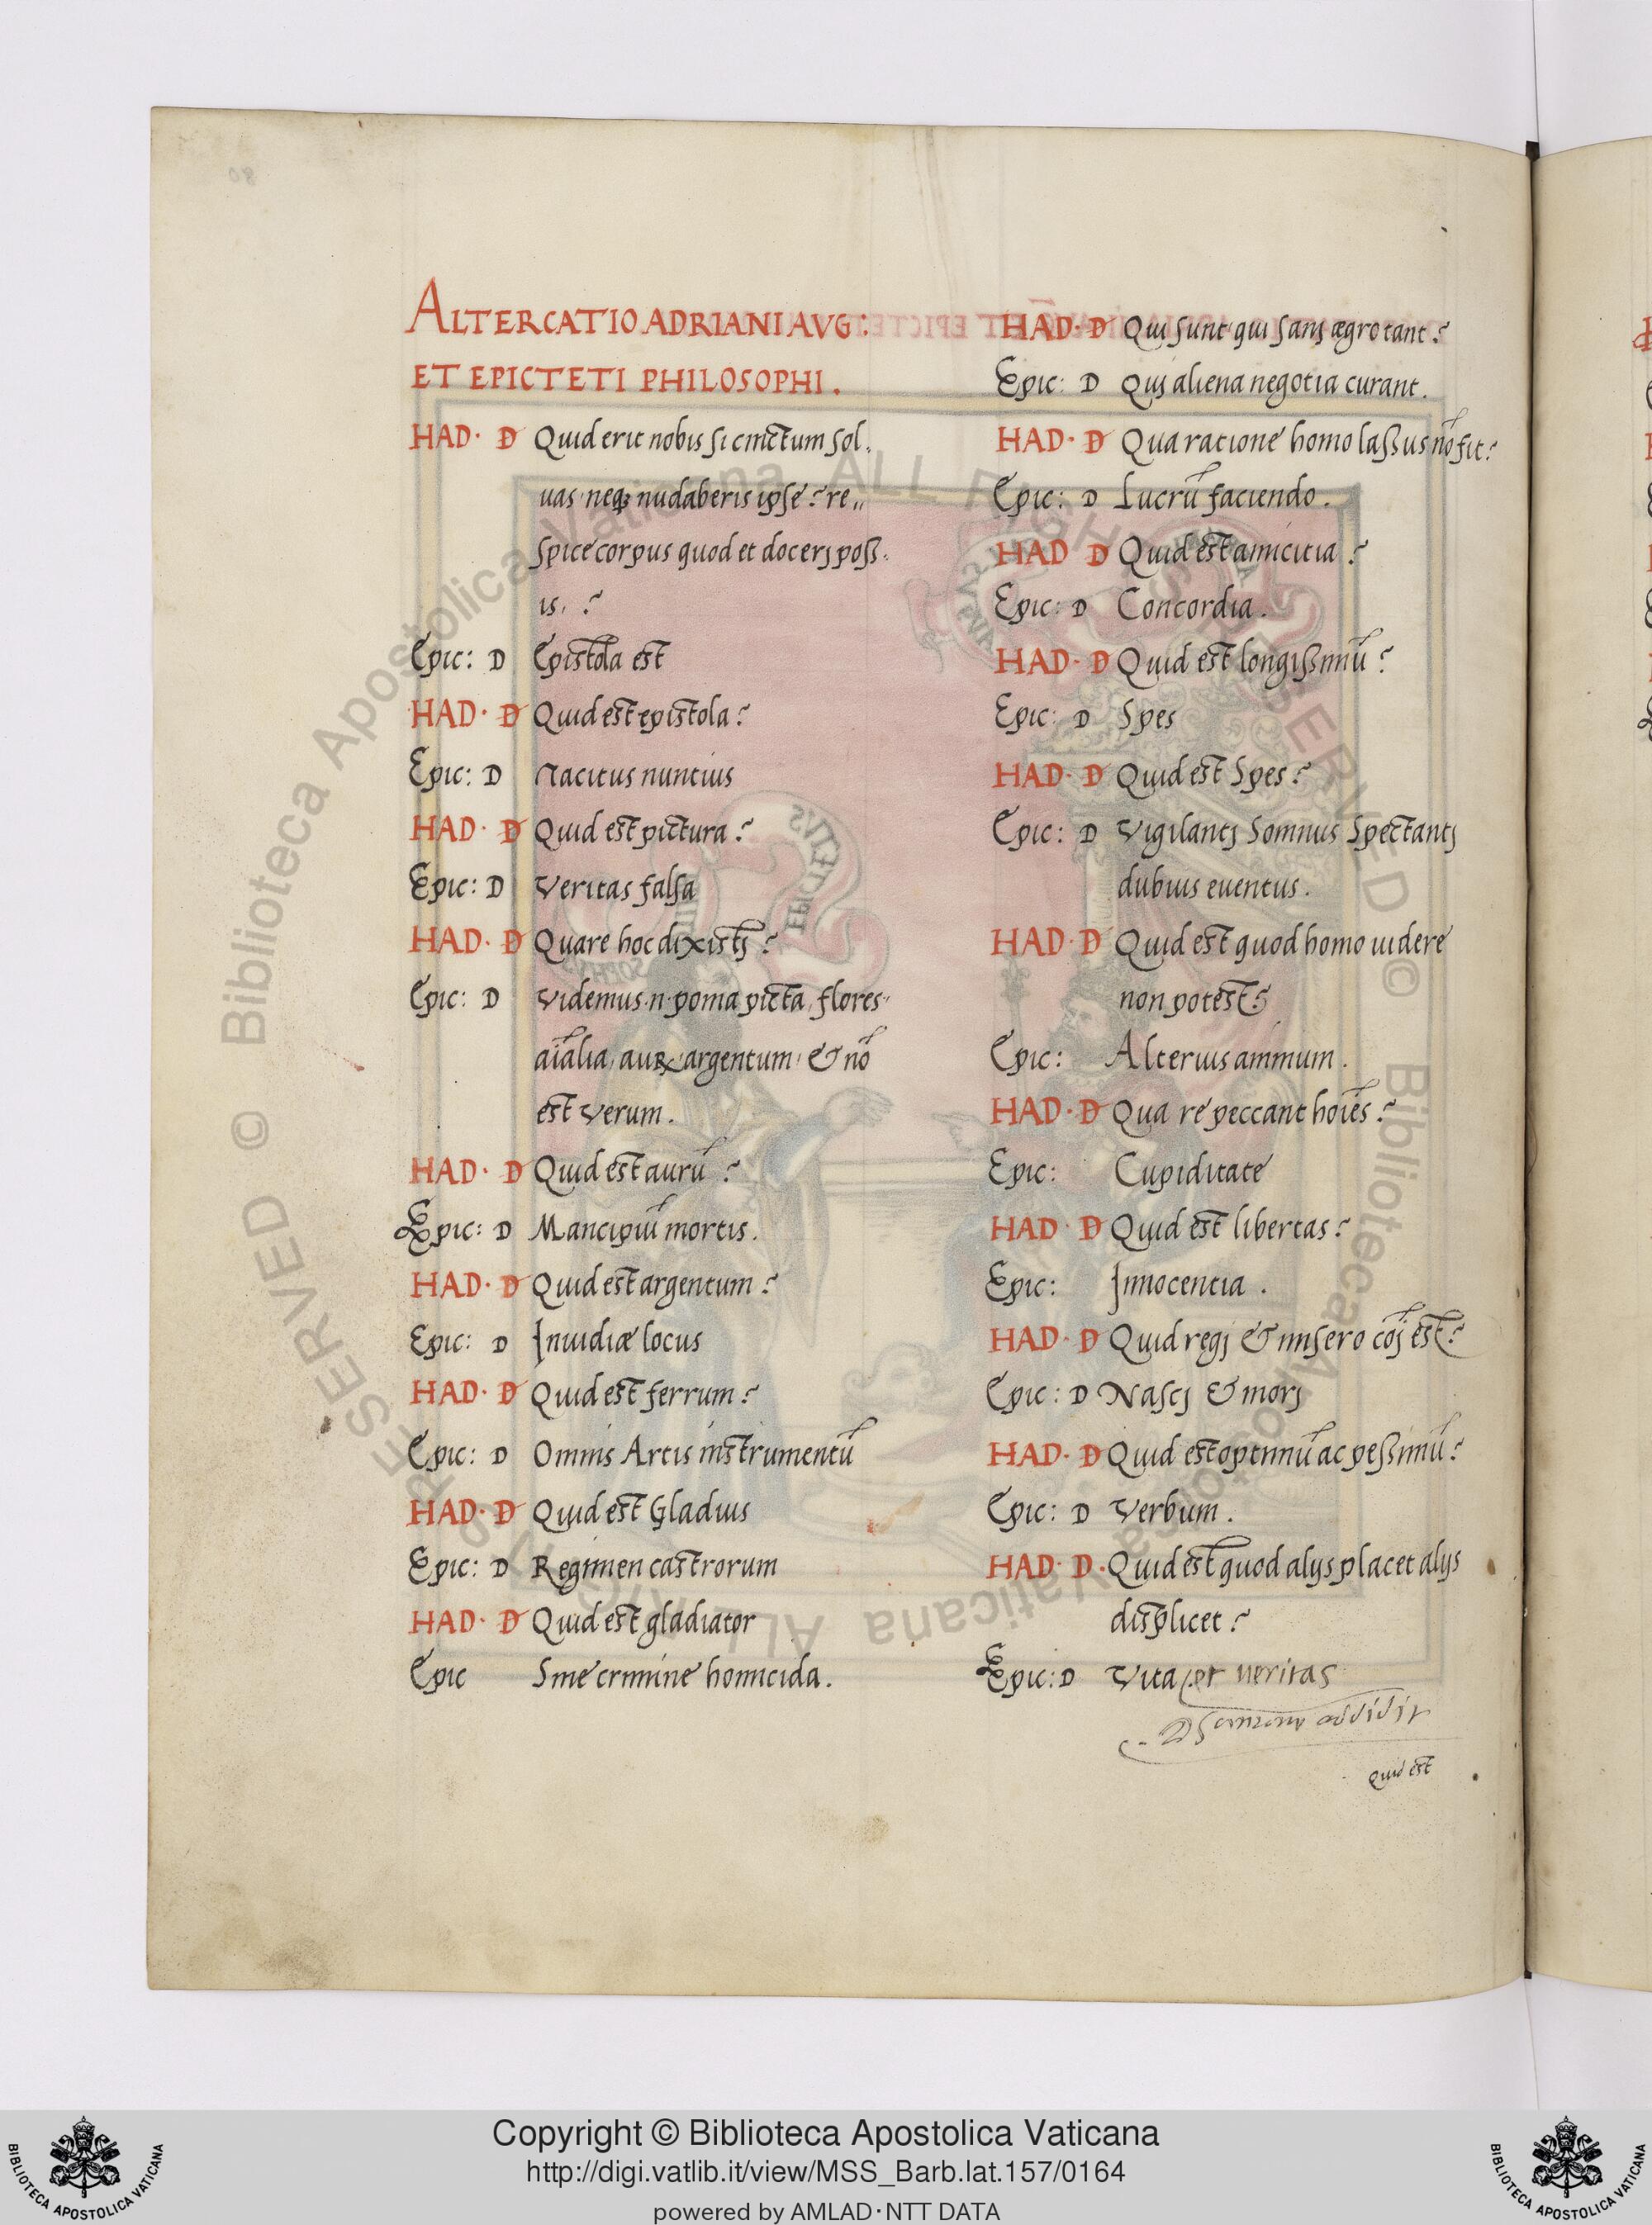 ALTERCATIO ADRIANI AVG:
ET EPICTETI PHILOSOPHI.
HAD· D Quid erit nobis si cinctum sol,
uas neqꝫ nudaberis ipse? re,,
spice corpus quod et docerj poss
is, ?
Epic: D Epistola est
HAD· D Quid est epistola?
Epic: D Tacitus nuntius
HAD· D Quid est pictura?
Epic: D Veritas falsa
HAD· D Quare hoc dixistj?
Epic: D Videmus·n·poma picta, flores,
aīalia, auꝝ argentum, & nō
est verum.
HAD· D Quid est aurū?
Epic: D Mancipiū mortis.
HAD· D Quid est argentum?
Epic: D Inuidiæ locus
HAD· D Quid est ferrum?
Epic: D Omnis Artis instrumentū
HAD· D Quid est Gladius
Epic: D Regimen castrorum
HAD· D Quid est gladiator
Epic Sine crimine homicida.
HAD· D Qui sunt qui sanj ægrotant?
Epic: D Quj aliena negotia curant.
HAD· D Qua ratione homo lassus nō fit?
Epic: D Lucrū faciendo.
HAD D Quid est amicitia?
Epic: D Concordia.
HAD· D Quid est longissimū?
Epic: D Spes
HAD· D Quid est Spes?
Epic: D Vigilantj Somnus Spectantj
dubius euentus.
HAD· D Quid est quod homo uidere
non potest?
Epic: Alterius animum.
HAD· D Qua re peccant hoīes?
Epic: Cupiditate
HAD· D Quid est libertas?
Epic: Innocentia.
HAD· D Quid regj & misero cōj est?
Epic: D Nascj & morj
HAD· D Quid est optimū ac pessimū?
Epic: D Verbum.
HAD· D· Quid est quod alijs placet alijs
displicet?
Epic: D Vita (et ueritas
addidit
Quid est
Copyright © Biblioteca Apostolica Vaticana
http://digi.vatlib.it/view/MSS_Barb.lat.157/0164
powered by AMLAD·NTT DATA
BIBLIOTECA APOSTOLICA VATICANA
BIBLIOTECA APOSTOLICA VATICANA